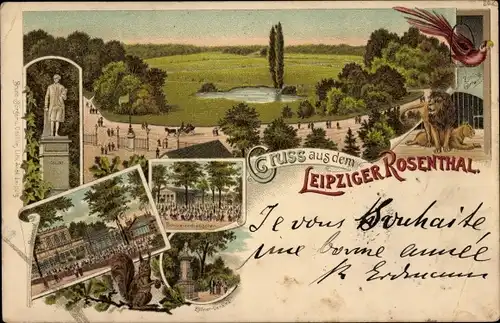 Gruss aus dem
LEIPZIGER ROSENTHAL.
Je vous Souhaite
une bonne année
R. Erdmann